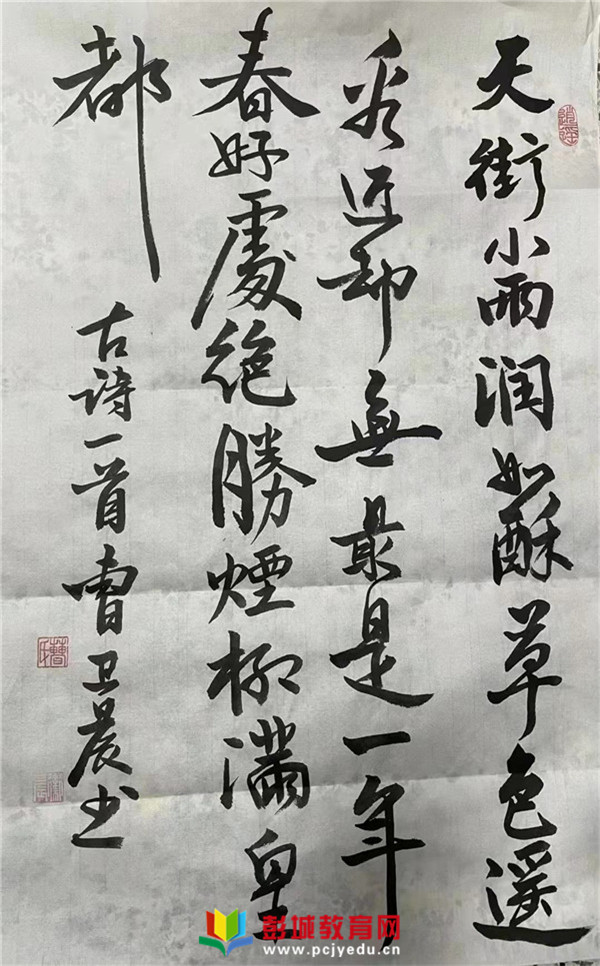 天街小雨润如酥草色遥
看近却無最是一年
春好處絶勝煙柳滿皇
都
古诗一首曹卫晨书
彭城教育网
www.pcjyedu.cn